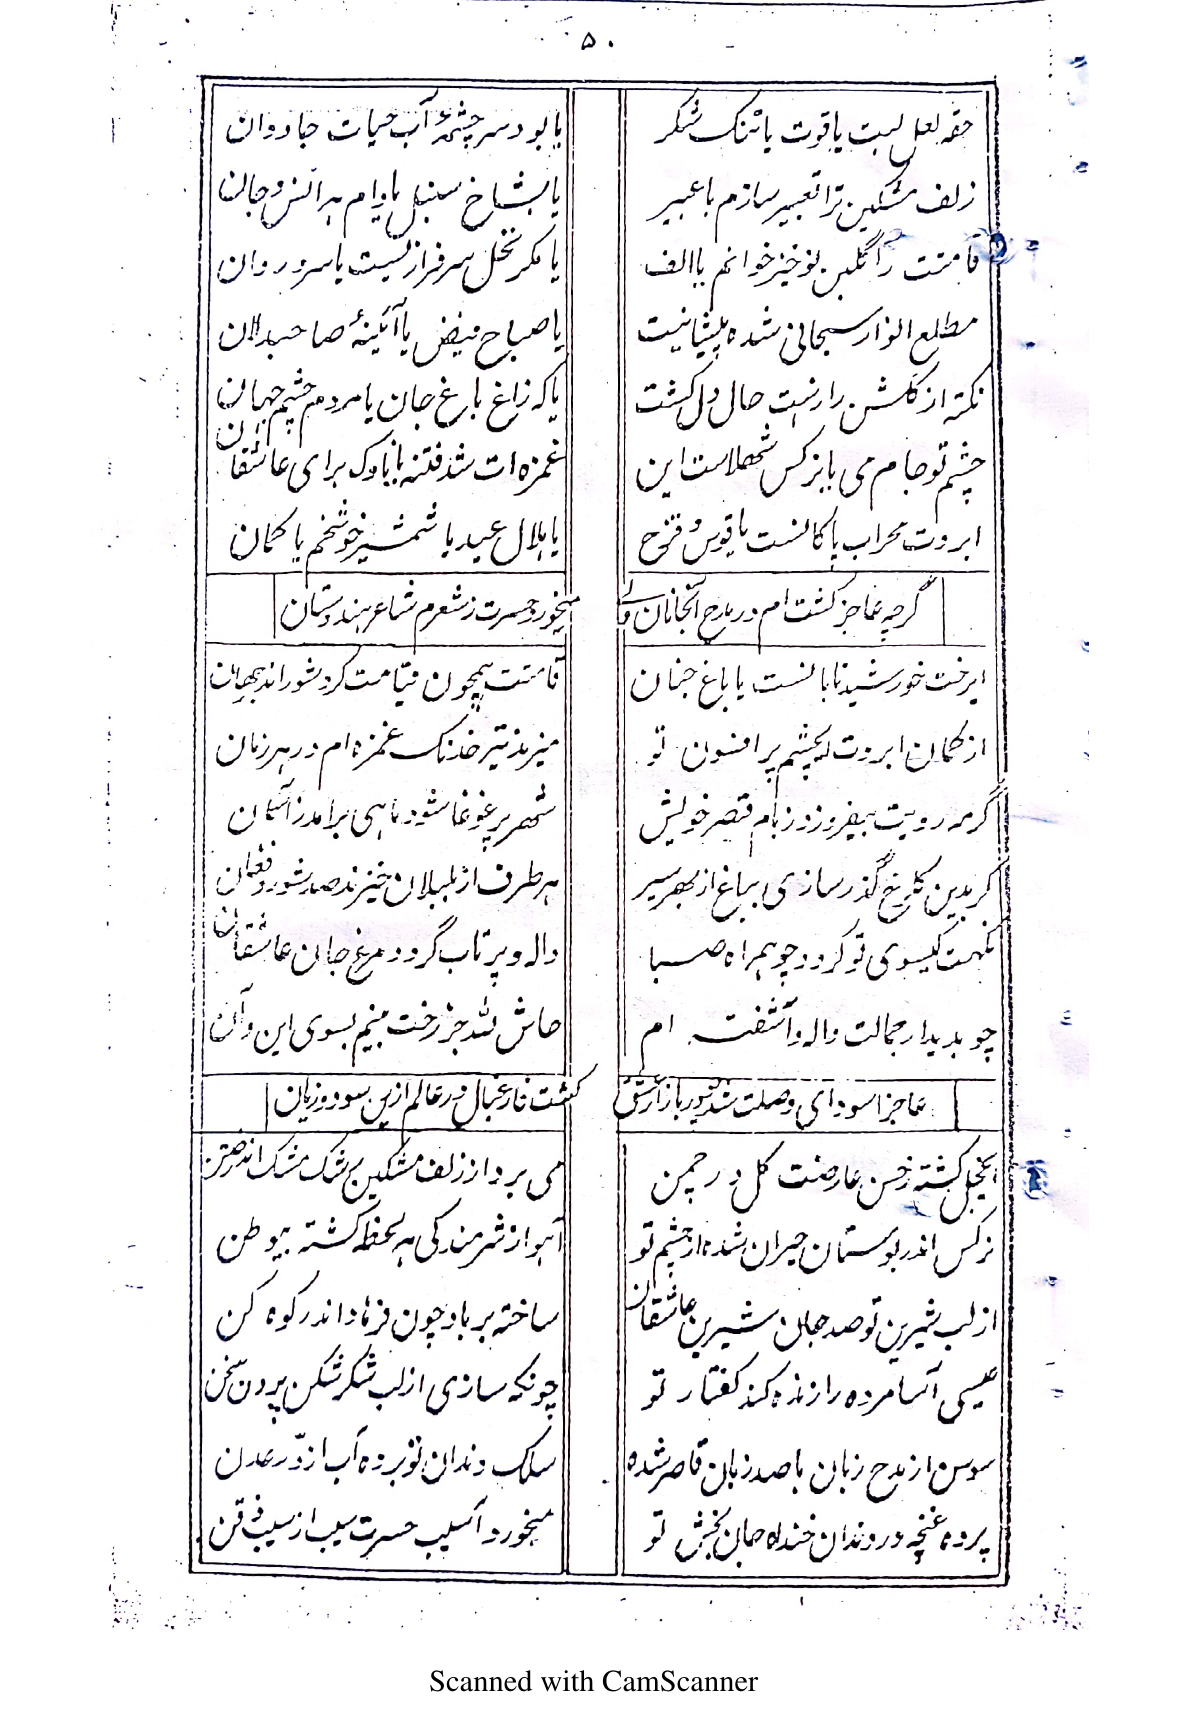 ۵۰
حقه لعل لبت یاقوت یا تنک شکر یا بود سرچشمۀ آب حیات جاودان
زلف مشکین ترا تعبیر سازم با عبیر یا بشاخ سنبل یا دام هر انس و جان
قامتت را گلبن نوخیز خوانم یا الف یا مکر نخل سرفرازیست یا سرو روان
مطلع انوار سبحانی شده پیشانیت یا صباح فیض یا آئینۀ صاحبدلان
نکته از گلشن رازست خال دل کشت یا که زاغ باغ جان یا مردم چشم جهان
چشم تو جام می یا نرکس شهلاست این غمزه ات شد فتنه یا ناوک برای عاشقان
ابروت محراب یا کالنست یا قوس و قزح یا هلال عید یا شمشیر خوشخم یا کمان
گرچه عاجز کشت ام در مدح آنجانان ولی میخورد حسرت ز شعرم شاعر هندوستان
ایرخت خورشید تابانست یا باغ جنان قامتت همچون قیامت کرد شور اندر جهان
از کمان ابروت ایچشم پر افسون تو میزند تیر خدنک غمزه ام در هر زمان
گر مه رویت بیفروزد ز بام قصر خویش شهر پر غوغا شود ماهی برامد ز آسمان
کر بدین کلرخ گذر سازی بباغ از بهر سیر هر طرف از بلبلان خیزند صد شور و فغان
نکهت کیسوی تو کردد چو همراه صبا واله و پر تاب گردد مرغ جان عاشقان
چو بدیدار جمالت واله و آشفته ام حاش لله جز رخت بینم بسوی این و آن
عاجزا سودای وصلت شد بازارش کشت فارغبال در عالم ازین سود و زیان
ایخجل کشته ز حسن عارضت کل در چمن می برد از زلف مشکین رشک مشک اندر ختن
نرکس اندر بوستان حیران شده از چشم تو آهو از شرمندکی هر لحظه کشته بیوطن
از لب شیرین تو صد جان شیرین عاشقان ساخته بر باد چون فرهاد اندر کوه کن
عیسی آسا مرده را زنده کند کفتار تو چونکه سازی از لب شکر شکن بیرون سخن
سوسن از مدح زبان با صد زبان قاصر شده سلک دندان تو برده آب از درّ عدن
پرده غنچه درو دندان خنده جان بخش تو میخورد آسیب حسرت سیب از سیب ذقن
Scanned with CamScanner